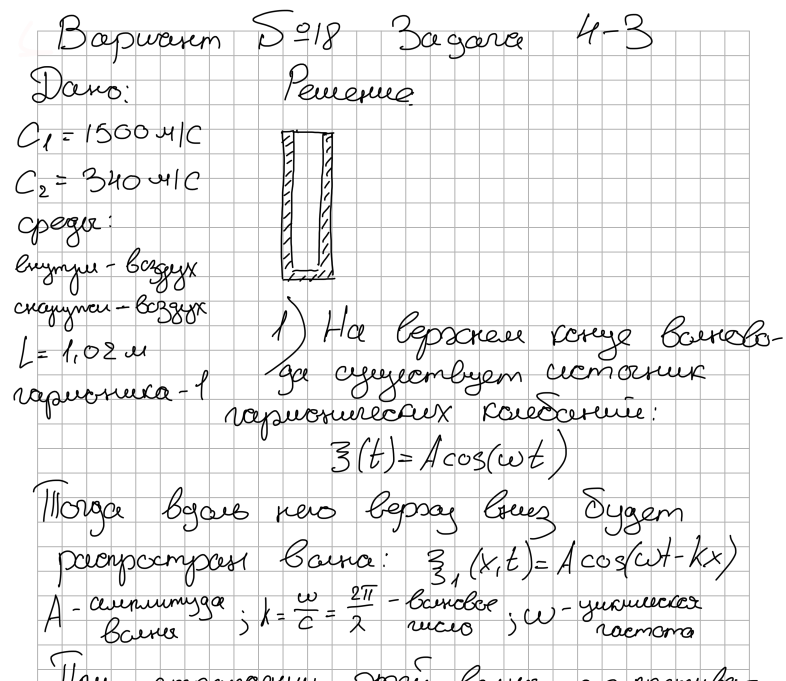 Вариант №18 Задача 4-3
Дано: Решение
C₁ = 1500 м/с
C₂ = 340 м/с
среды:
внутри - воздух
снаружи - воздух
L = 1,02 м
гармоника - 1
1) На верхнем конце волново-
да существует источник
гармонических колебаний:
ξ(t) = A cos(ωt)
Тогда вдоль него сверху вниз будет
распростран волна: ξ₁(x,t) = A cos(ωt - kx)
A - амплитуда волны ; k = ω/c = 2π/λ - волновое число ; ω - циклическая частота
При этой волны